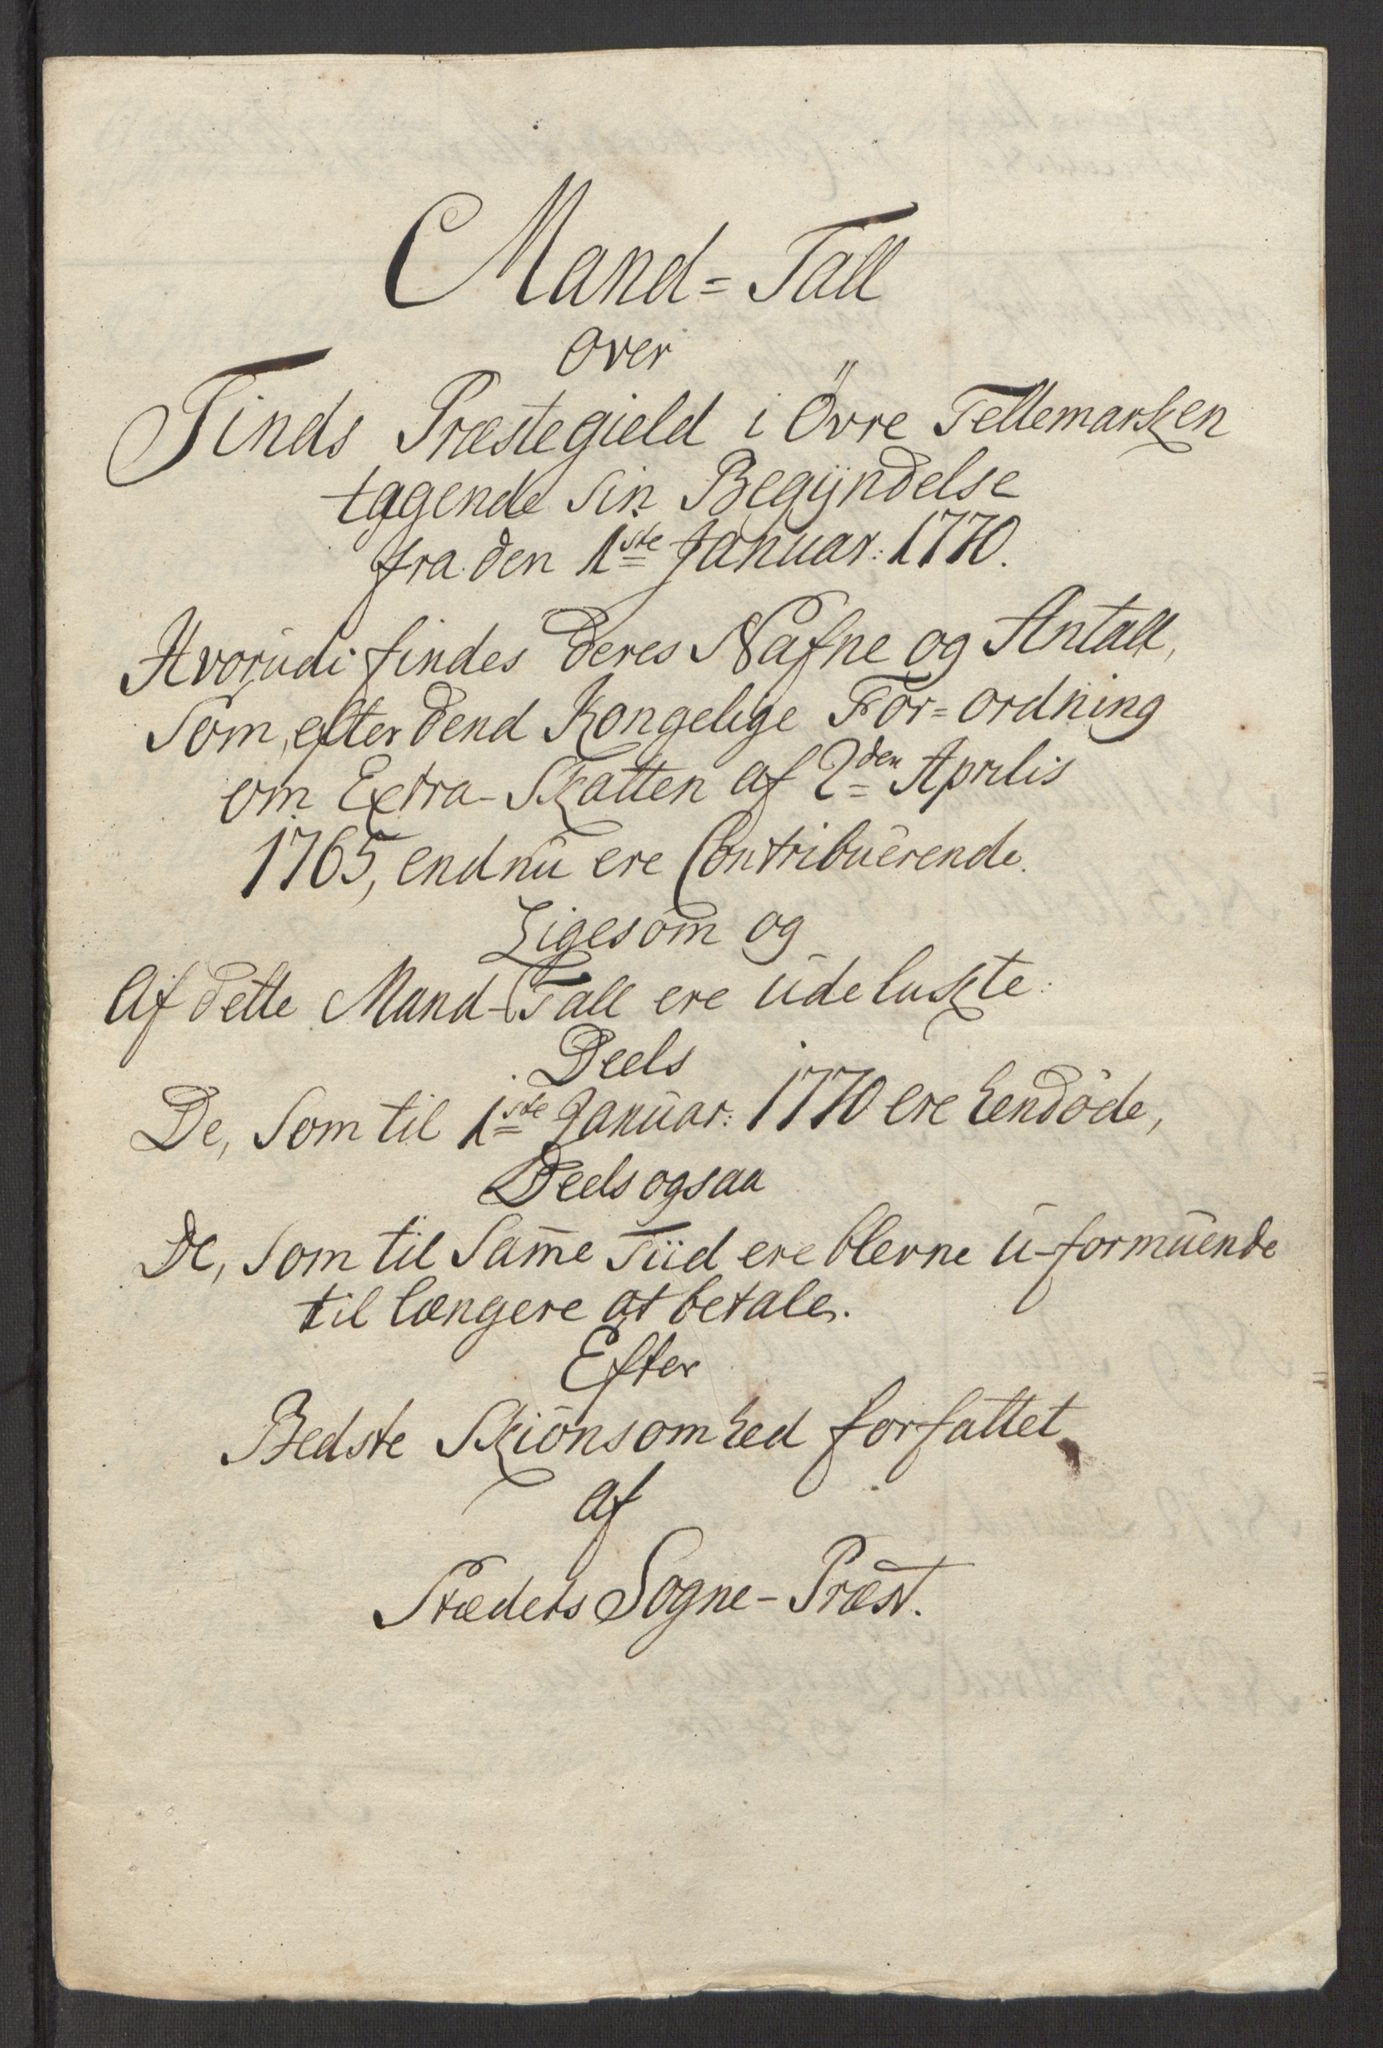 Mand=Tall
over
Tinds Præstegield i Övre Tellemarken
tagende sin Begÿndelse
fra den 1ste Januar: 1770.
Hvorudi findes deres Nafne og Antall,
Som, efter dend Kongelige For=ordning
om Extra-Skatten af 2den Aprilis
1765, endnu ere Contribuerende.
Ligesom og
Af dette Mand-Tall ere udelukte:
Deels
De, Som til 1ste Januar: 1770 ere hendöde,
Deels ogsaa
De, som til Sam̅e Tiid ere blevne u-formuende
til længere at betale.
Efter
Bedste Skiönsomhed forfattet
af
Stædets Sogne-Præst.